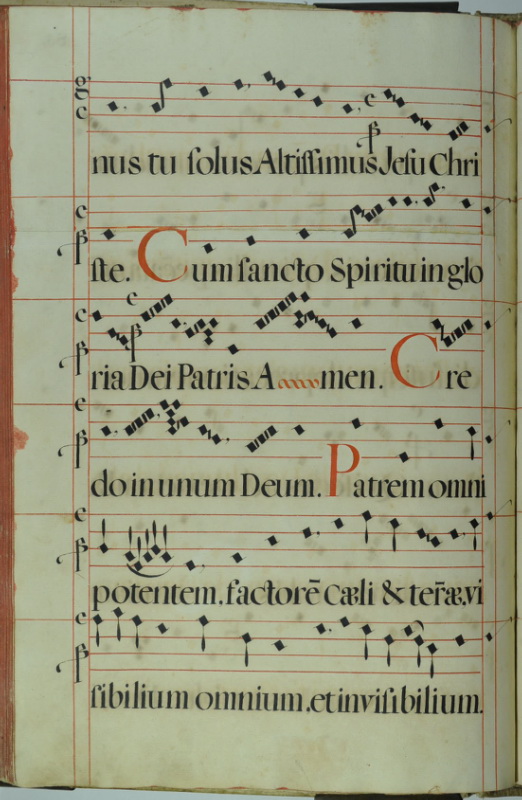 nus tu ſolus Altiſſimus Jeſu Chri
ſte. Cum ſancto Spiritu in glo
ria Dei Patris. A men. Cre
do in unum Deum. Patrem omni
potentem. factorē cæli & ter̄æ. vi
ſibilium omnium, et inviſibilium.